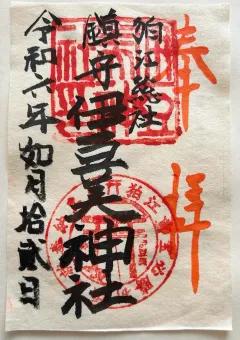 奉拝
狛江総社
鎮守 伊豆美神社
令和六年如月拾貳日